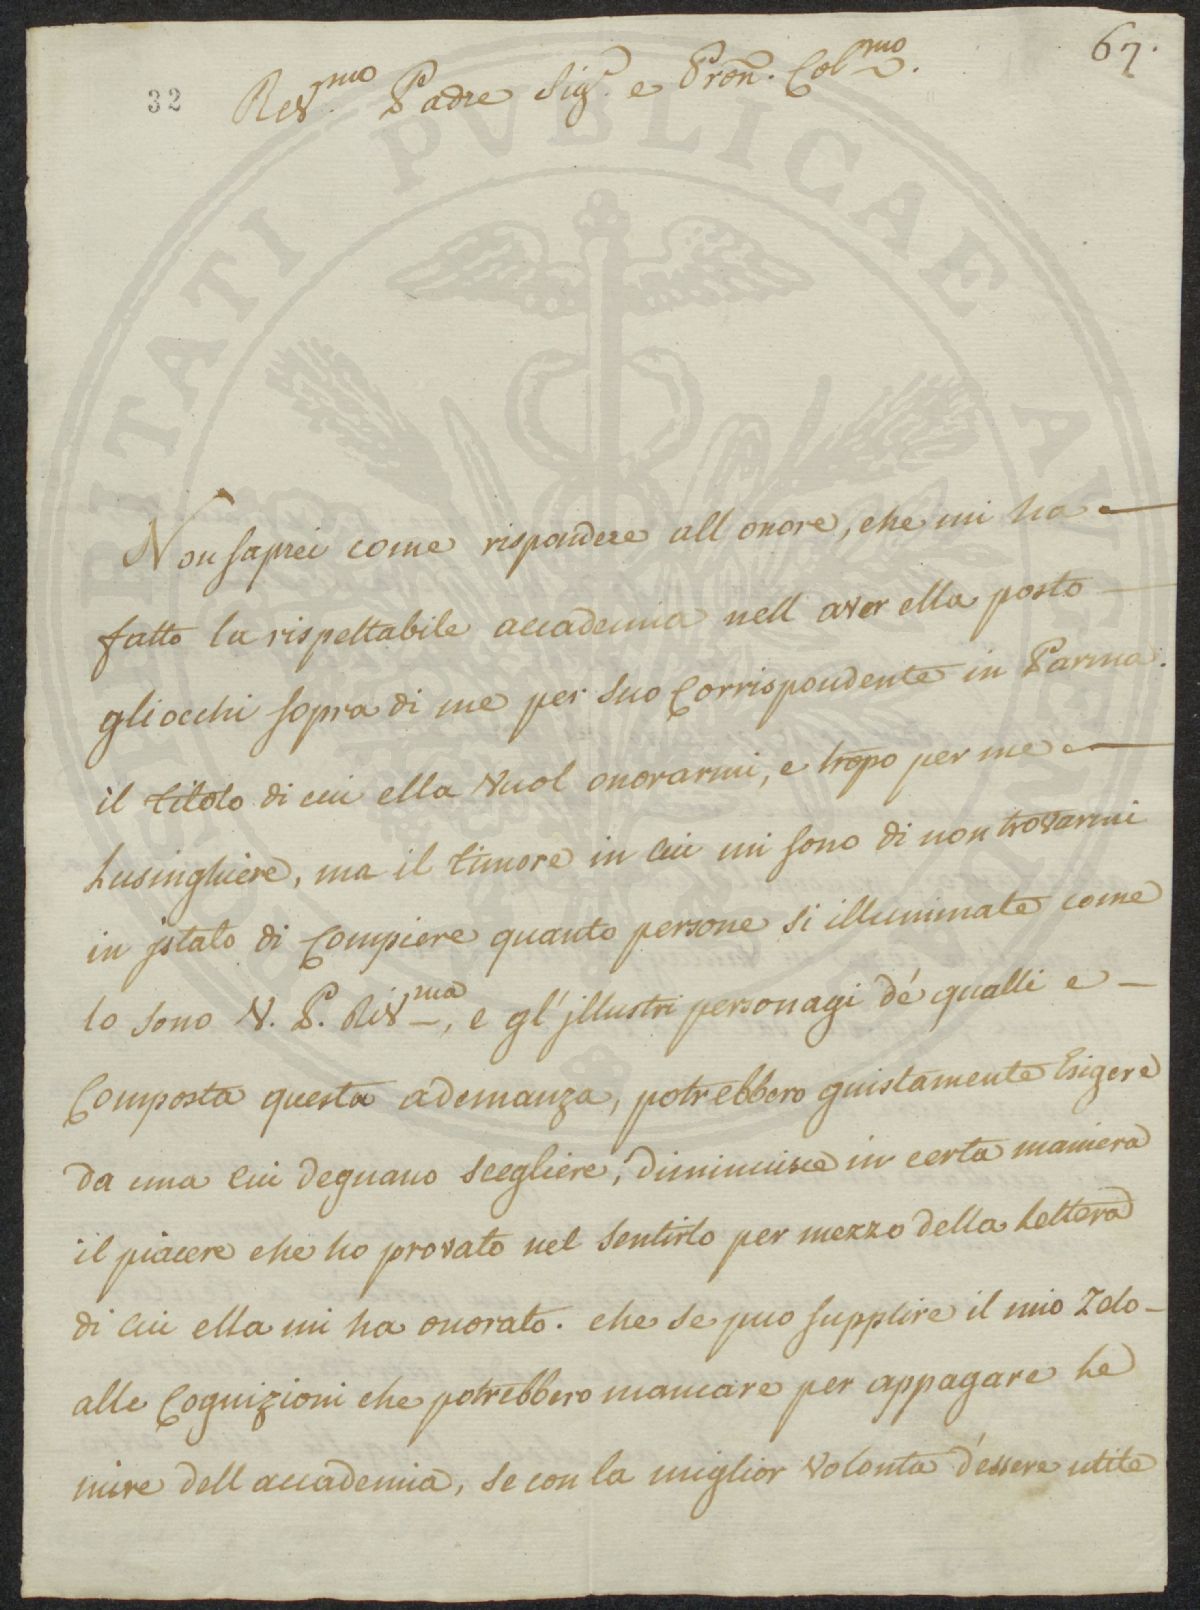 67.
32
Rev.mo Padre Sig.r e Pron. Col.mo.
Non saprei come rispondere all onore, che mi ha
fatto la rispettabile accademia nell aver ella posto
gli occhi sopra di me per suo Corrispondente in Parma.
il titolo di cui ella vuol onorarmi, e tropo per me
Lusinghiere, ma il timore in cui mi sono di non trovarmi
in jstato di Compiere quanto persone si illuminate come
lo sono V. P. Rev.ma, e gl'jllustri personagi de' qualli e
Composta questa adunanza, potrebbero giustamente Esigere
da una cui degnano scegliere, diminuisce in certa maniera
il piacere che ho provato nel sentirlo per mezzo della Lettera
di cui ella mi ha onorato. che se puo supplire il mio Zelo
alle Cognizioni che potrebbero mancare per appagare Le
mire dell accademia, se con la miglior volonta d'essere utile
PVBLICAE